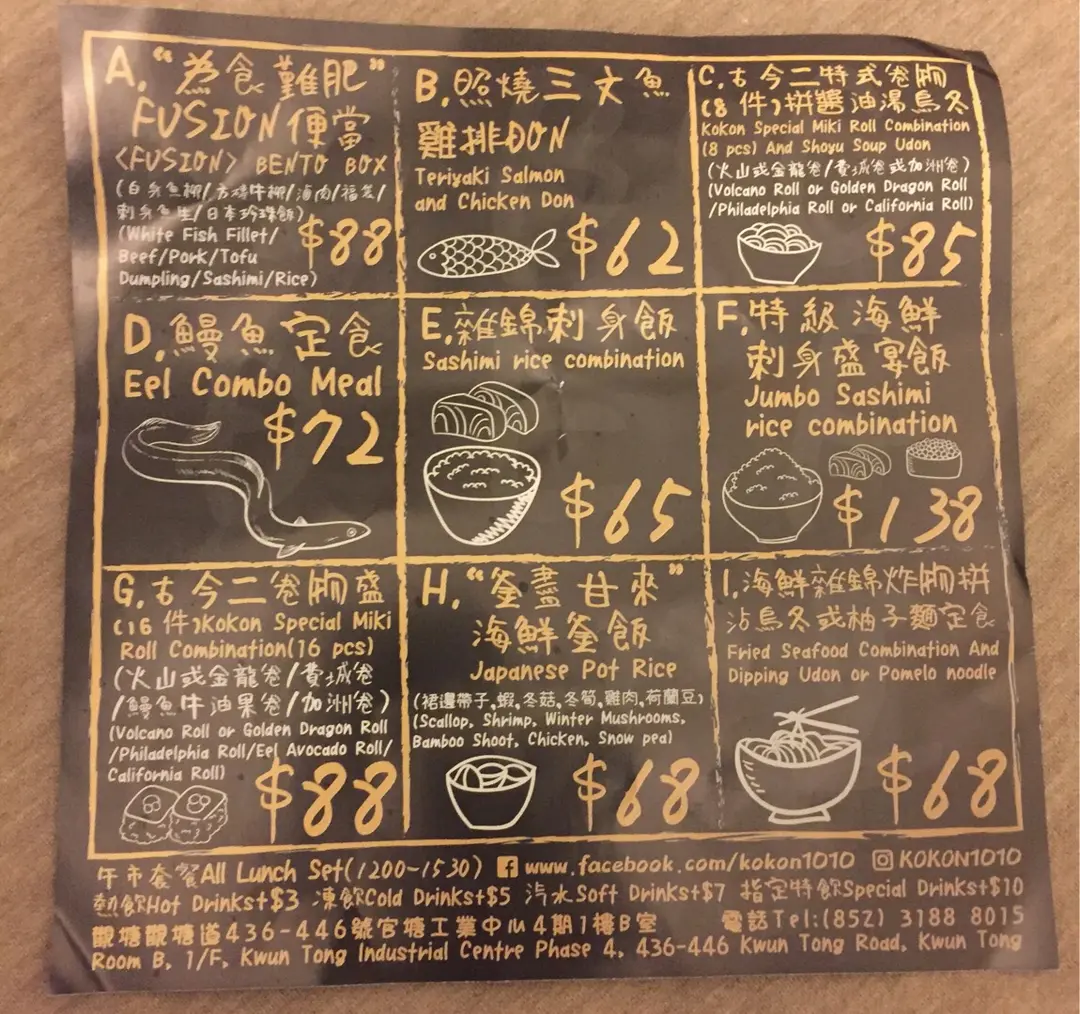 A. "為食難肥"
FUSION便當
<FUSION> BENTO BOX
(白身魚柳/方燒牛柳/滷肉/福袋/
刺身魚生/日本珍珠飯)
(White Fish Fillet/
Beef/Pork/Tofu
Dumpling/Sashimi/Rice)
$88
B. 照燒三文魚
雞排DON
Teriyaki Salmon
and Chicken Don
$62
C. 古今二特式卷物
(8 件)拼醬油湯烏冬
Kokon Special Miki Roll Combination
(8 pcs) And Shoyu Soup Udon
(火山或金龍卷/費城卷或加洲卷)
(Volcano Roll or Golden Dragon Roll
/Philadelphia Roll or California Roll)
$85
D. 鰻魚定食
Eel Combo Meal
$72
E. 雜錦刺身飯
Sashimi rice combination
$65
F. 特級海鮮
刺身盛宴飯
Jumbo Sashimi
rice combination
$138
G. 古今二卷物盛
(16 件)Kokon Special Miki
Roll Combination(16 pcs)
(火山或金龍卷/費城卷
/鰻魚牛油果卷/加洲卷)
(Volcano Roll or Golden Dragon Roll
/Philadelphia Roll/Eel Avocado Roll/
California Roll)
$88
H. "釜盡甘來"
海鮮釜飯
Japanese Pot Rice
(裙邊帶子,蝦,冬菇,冬筍,雞肉,荷蘭豆)
(Scallop, Shrimp, Winter Mushrooms,
Bamboo Shoot, Chicken, Snow pea)
$68
I. 海鮮雜錦炸物拼
沾烏冬或柚子麵定食
Fried Seafood Combination And
Dipping Udon or Pomelo noodle
$68
午市套餐All Lunch Set(1200~1530) www.facebook.com/kokon1010 KOKON1010
熱飲Hot Drinks+$3 凍飲Cold Drinks+$5 汽水Soft Drinks+$7 指定特飲Special Drinks+$10
觀塘觀塘道436-446號官塘工業中心4期1樓B室 電話Tel:(852) 3188 8015
Room B, 1/F, Kwun Tong Industrial Centre Phase 4, 436-446 Kwun Tong Road, Kwun Tong